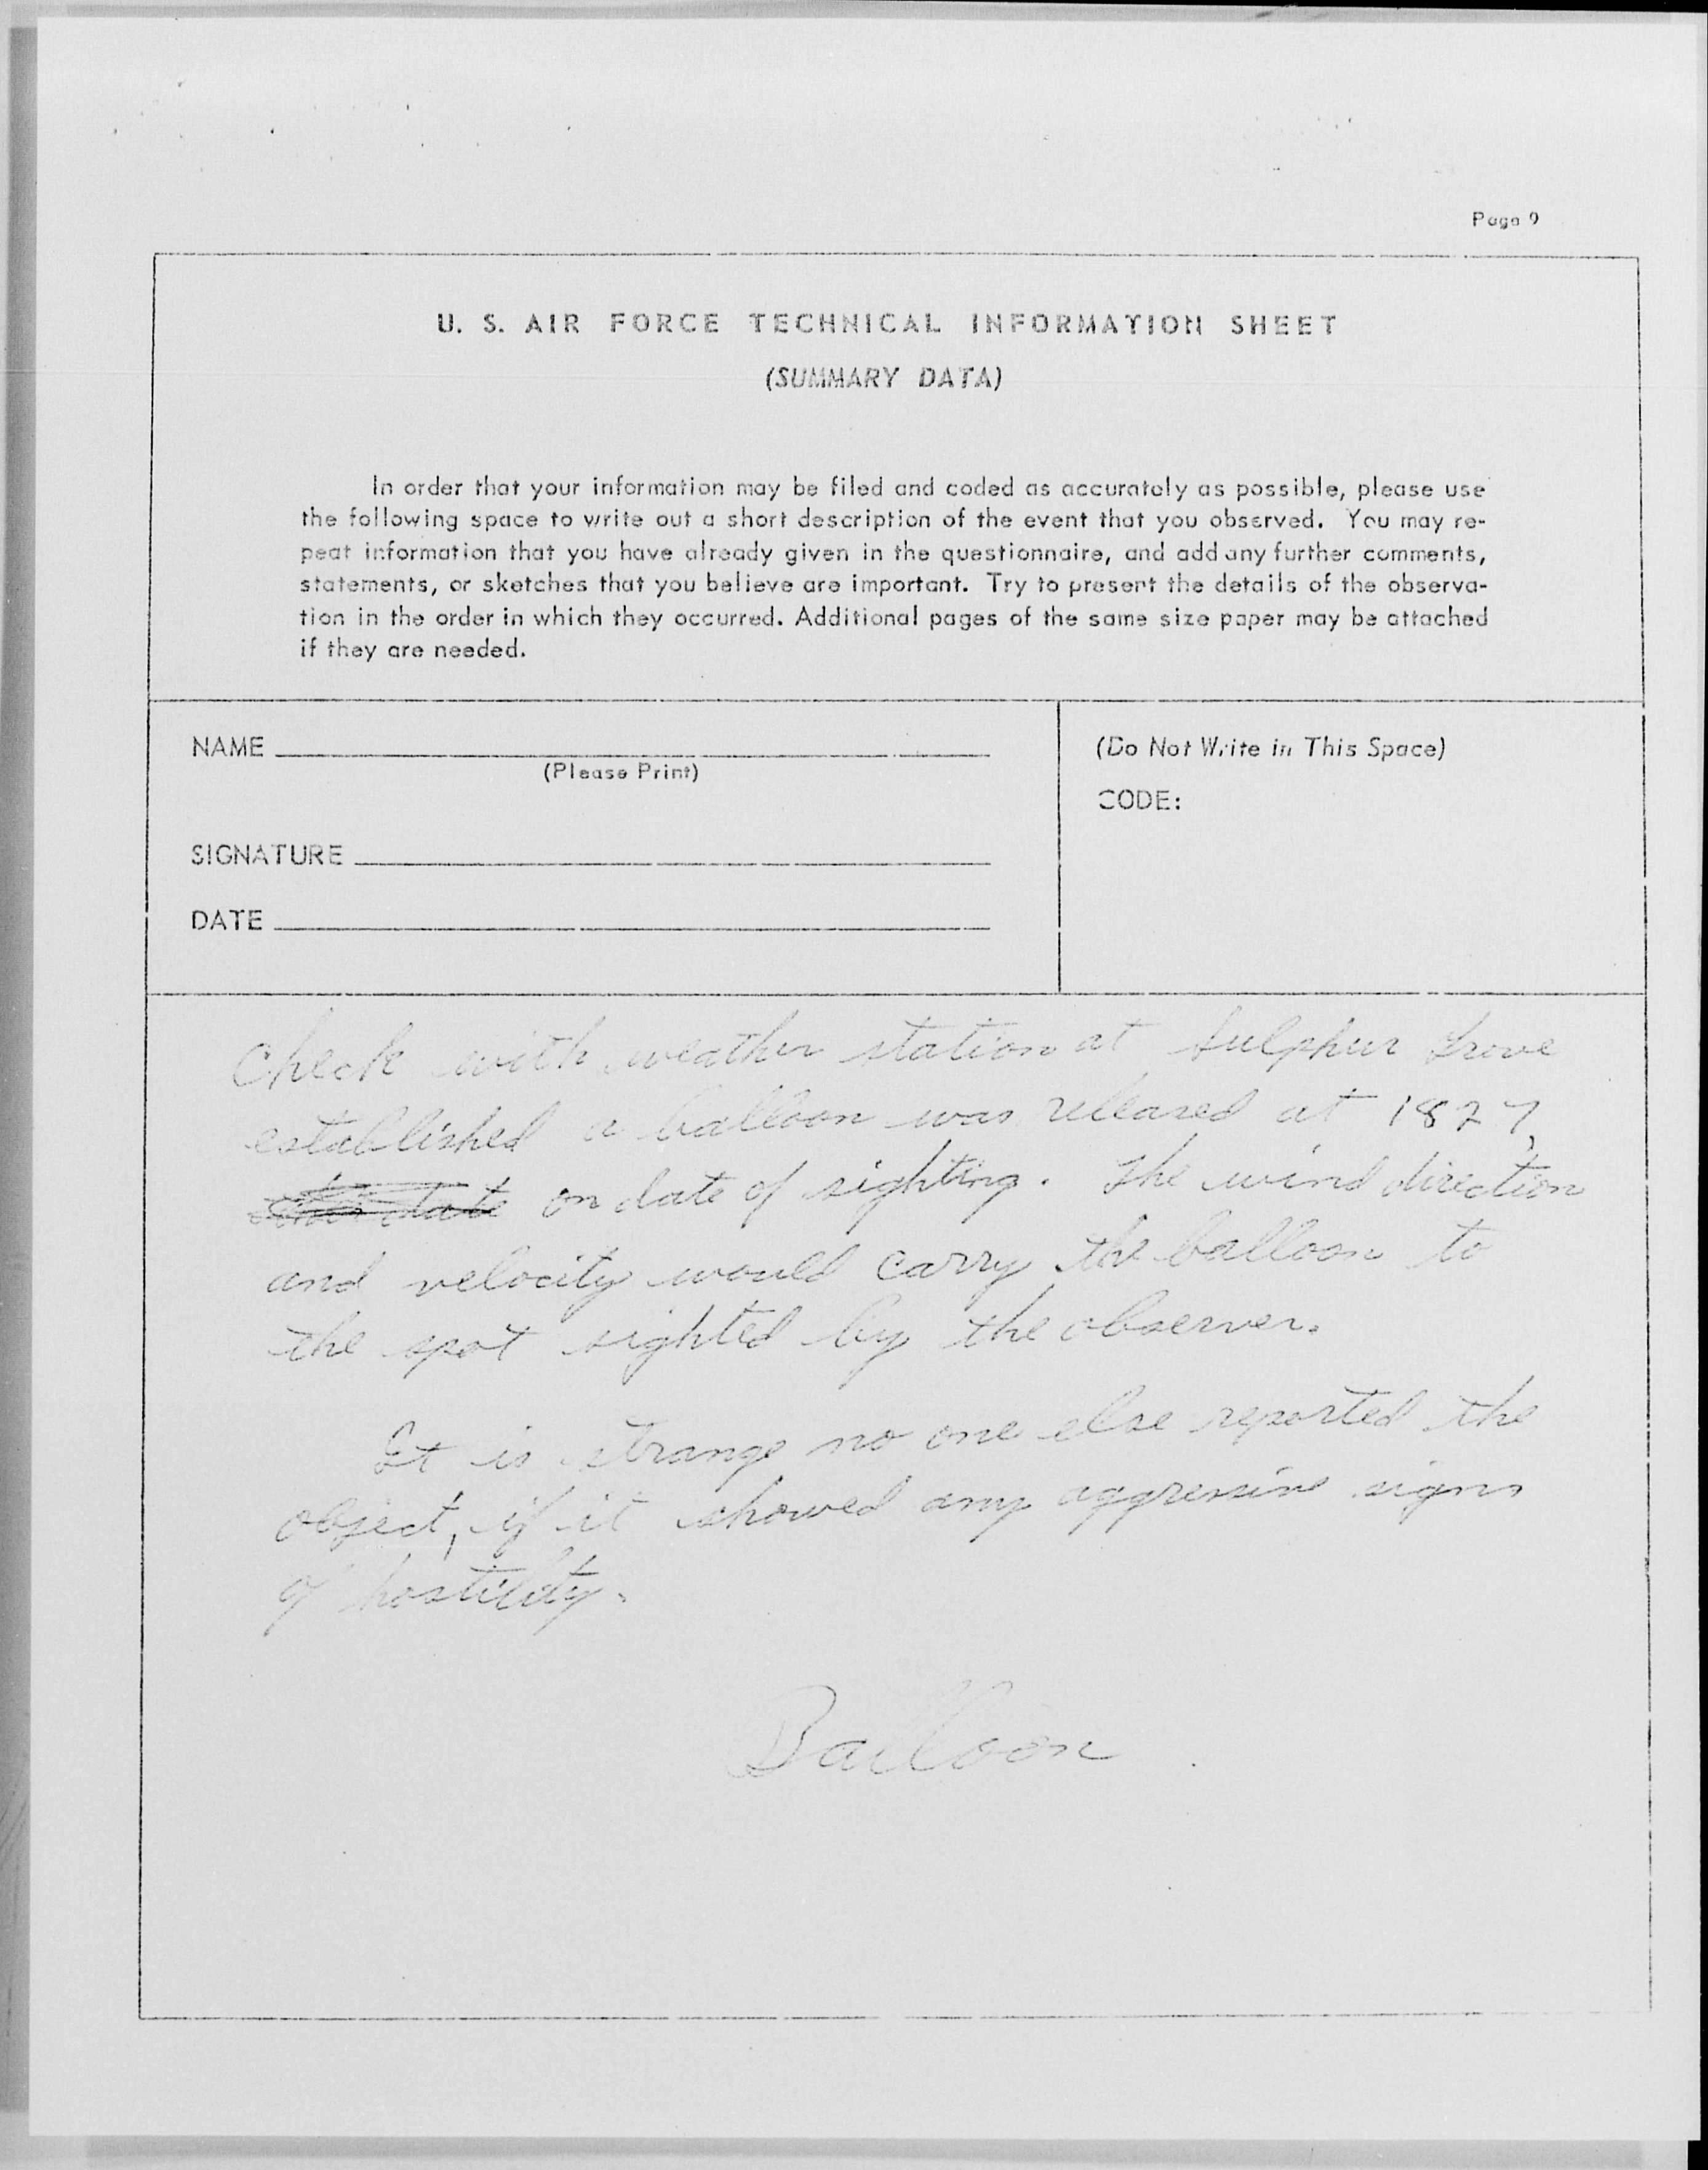 Page 9
U. S. AIR FORCE TECHNICAL INFORMATION SHEET
(SUMMARY DATA)
In order that your information may be filed and coded as accurately as possible, please use
the following space to write out a short description of the event that you observed. You may re-
peat information that you have already given in the questionnaire, and add any further comments,
statements, or sketches that you believe are important. Try to present the details of the observa-
tion in the order in which they occurred. Additional pages of the same size paper may be attached
if they are needed.
NAME
(Please Print)
SIGNATURE
DATE
(Do Not Write in This Space)
CODE:
Check with weather station at Sulphur Grove
established a balloon was released at 1827,
on date of sighting. The wind direction
and velocity would carry the balloon to
the spot sighted by the observer.
It is strange no one else reported the
object, if it showed any aggressive signs
of hostility.
Balloon